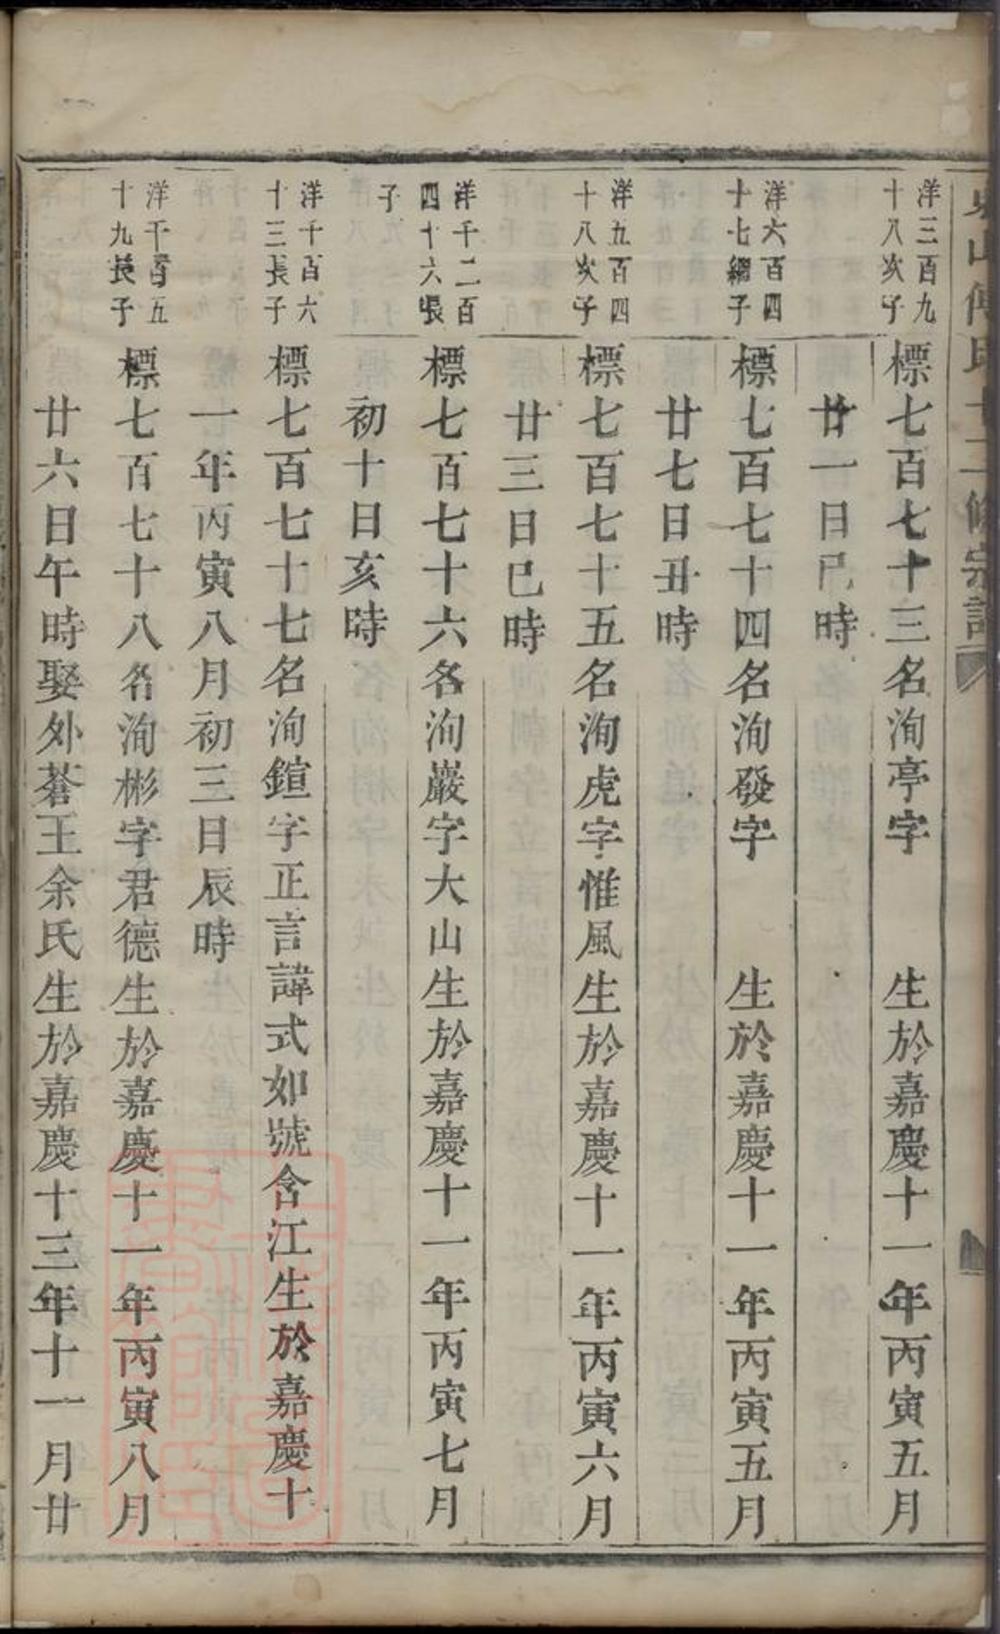 洋三百九
十八次子
標七百七十三名洵亭字 生於嘉慶十一年丙寅五月
廿一日巳時
洋六百四
十七繼子
標七百七十四名洵發字 生於嘉慶十一年丙寅五月
廿七日丑時
洋五百四
十八次子
標七百七十五名洵虎字惟風生於嘉慶十一年丙寅六月
廿三日巳時
洋千二百
四十六長
子
標七百七十六名洵巖字大山生於嘉慶十一年丙寅七月
初十日亥時
洋千百六
十三長子
標七百七十七名洵鍹字正言諱式如號含江生於嘉慶十
一年丙寅八月初三日辰時
洋千百五
十九長子
標七百七十八名洵彬字君德生於嘉慶十一年丙寅八月
廿六日午時娶外蒼王余氏生於嘉慶十三年十一月廿